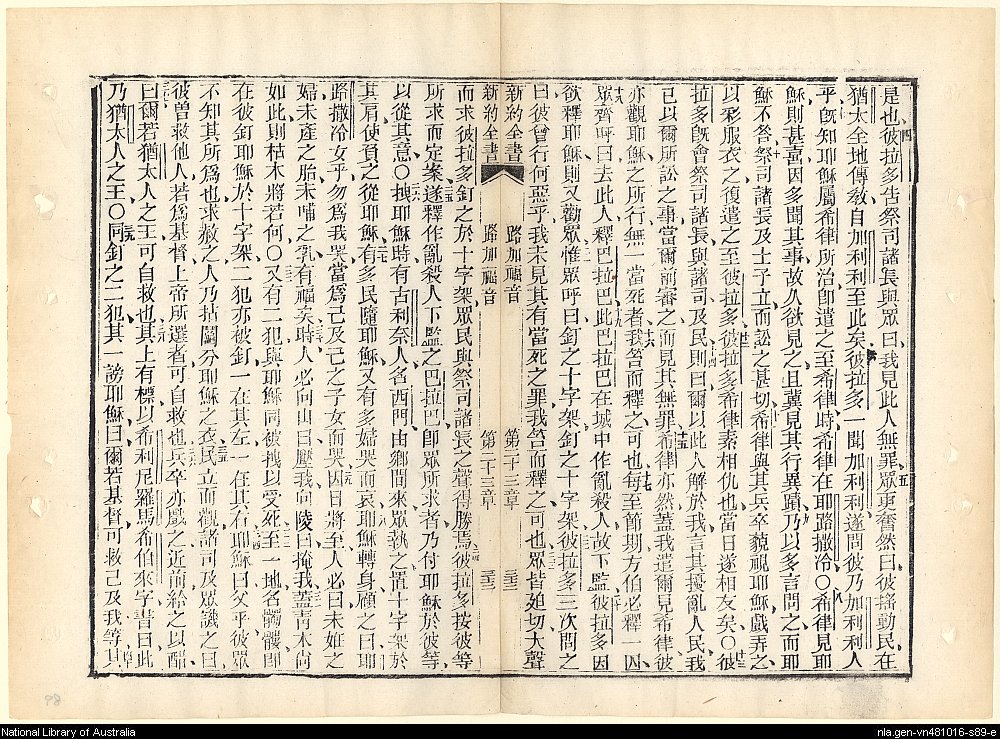 是也彼拉多告祭司諸長與眾曰我見此人無罪眾更奮然曰彼搖動民在
猶太全地傳教自加利利至此矣彼拉多一聞加利利遂問彼乃加利利人
乎既知耶穌屬希律所治卽遣之至希律時希律在耶路撒冷〇希律見耶
穌則甚喜因多聞其事故久欲見之且冀見其行異蹟乃以多言問之而耶
穌不答祭司諸長及士子立而訟之甚切希律與其兵卒藐視耶穌戲弄之
以彩服衣之復遣之至彼拉多彼拉多希律素相仇也當日遂相友矣〇彼
拉多既會祭司諸長與諸司及民則曰爾以此人解於我言其擾亂人民我
已以爾所訟之事當爾前審之而見其無罪希律亦然蓋我遣爾見希律彼
亦觀耶穌之所行無一當死者我笞而釋之可也每至節期方伯必釋一囚
眾齊呼曰去此人釋巴拉巴此巴拉巴在城中作亂殺人故下監彼拉多因
欲釋耶穌則又勸眾惟眾呼曰釘之十字架釘之十字架彼拉多三次問之
曰彼曾行何惡乎我未見其有當死之罪我笞而釋之可也眾皆廹切大聲
新約全書 路加福音 第二十三章
新約全書 路加福音 第二十三章
而求彼拉多釘之於十字架眾民與祭司諸長之聲得勝焉彼拉多按彼等
所求而定案遂釋作亂殺人下監之巴拉巴卽眾所求者乃付耶穌於彼等
以從其意〇拽耶穌時有古利奈人名西門由鄉間來眾執之置十字架於
其肩使負之從耶穌有多民隨耶穌又有多婦哭而哀耶穌轉身顧之曰耶
路撒冷女乎勿爲我哭當爲己及己之子女而哭因日將至人必曰未姙之
婦未產之胎未哺之乳有福矣時人必向山曰壓我向陵曰掩我蓋青木尙
如此則枯木將若何〇又有二犯與耶穌同被拽以受死至一地名髑髏卽
在彼釘耶穌於十字架二犯亦被釘一在其左一在其右耶穌曰父乎彼眾
不知其所爲也求赦之人乃拈鬮分耶穌之衣民立而觀諸司及眾譏之曰
彼曾救他人若爲基督上帝所選者可自救也兵卒亦戲之近前給之以醋
曰爾若猶太人之王可自救也其上有標以希利尼羅馬希伯來字書曰此
乃猶太人之王〇同釘之二犯其一謗耶穌曰爾若基督可救己及我等其
National Library of Australia
nla.gen-vn481016-s89-e